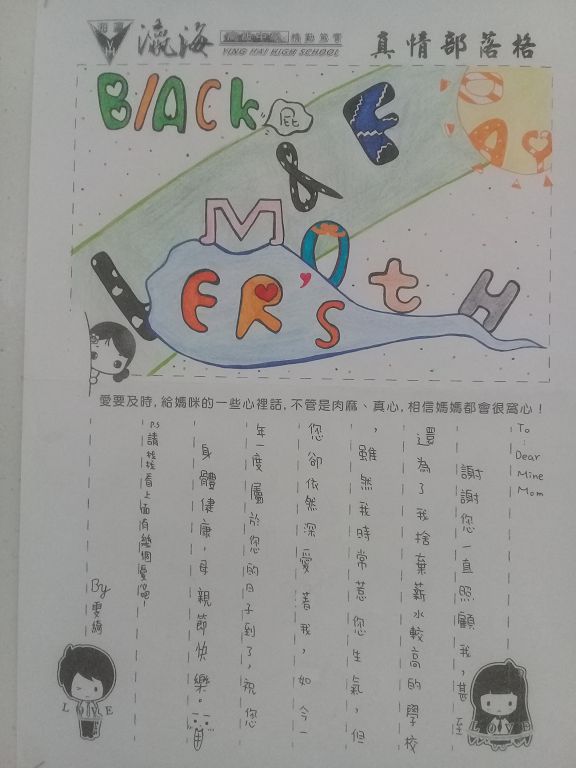 瀛海
精勤篤實
YING HAI HIGH SCHOOL
真情部落格
BlACk
屁
&
FEA
MOtH
lER'S
愛要及時,給媽咪的一些心裡話,不管是肉麻、真心,相信媽媽都會很窩心!
To:Dear Mine Mom
謝謝您一直照顧我,甚至
還為了我捨棄薪水較高的學校
,雖然我時常惹您生氣,但
您卻依然深愛著我,如今一
年一度屬於您的日子到了,祝您
身體健康,母親節快樂。
PS請找找看上面有幾個愛心吧!
By 雯綺
LOVE
LOVE